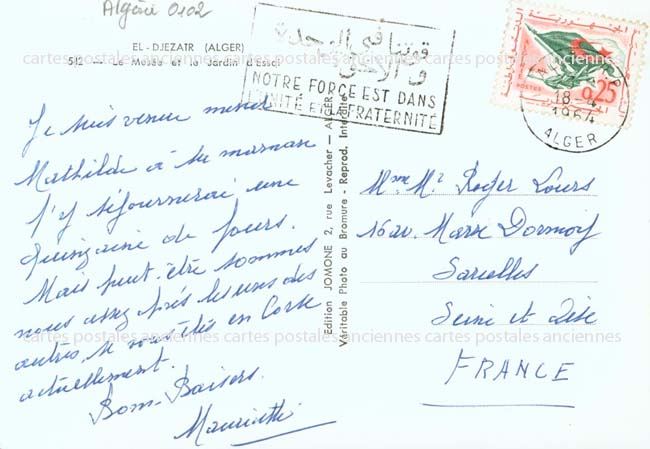 Algérie 0102
EL - DJEZAIR (ALGER)
512 — Le Musée et le Jardin d'Essai
قوتنا في الوحدة
و الأخوة
NOTRE FORCE EST DANS
L'UNITÉ ET LA FRATERNITÉ
POSTES
0,25
18-4
1964
ALGER
cartes postales anciennes cartes postales anciennes cartes postales anciennes
Je suis venue mener
Mathilde à sa maman
J'y séjournerai une
quinzaine de jours.
Mais peut-être sommes
nous assez près les uns des
autres, si vous êtes en Corse
actuellement.
Bons-Baisers.
Mauricette
Edition JOMONE 2, rue Levacher — ALGER
Véritable Photo au Bromure - Reprod. Interdite
Mme Mr Roger Lours
16 av. Marx Dormoy
Sarcelles
Seine et Oise
FRANCE
cartes postales anciennes cartes postales anciennes cartes postales anciennes